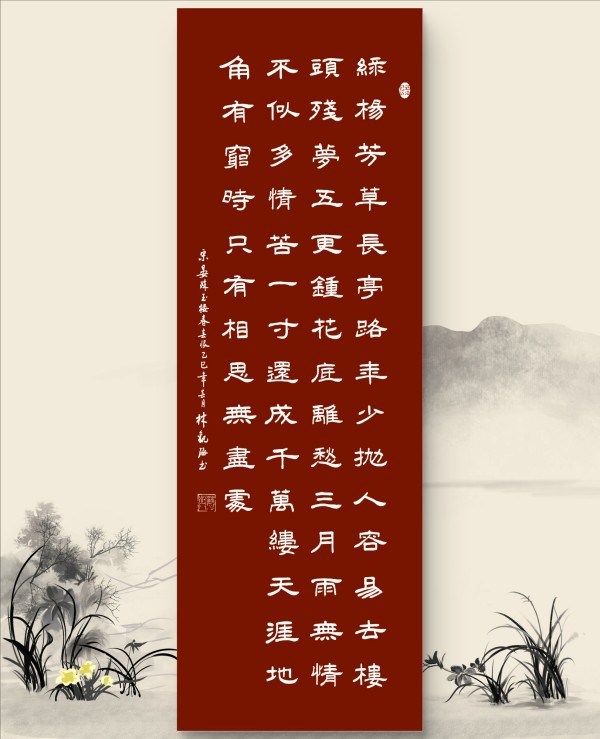 綠楊芳草長亭路年少拋人容易去樓
頭殘夢五更鍾花底離愁三月雨無情
不似多情苦一寸還成千萬縷天涯地
角有窮時只有相思無盡處
宋晏殊玉樓春春恨乙巳年月林海书